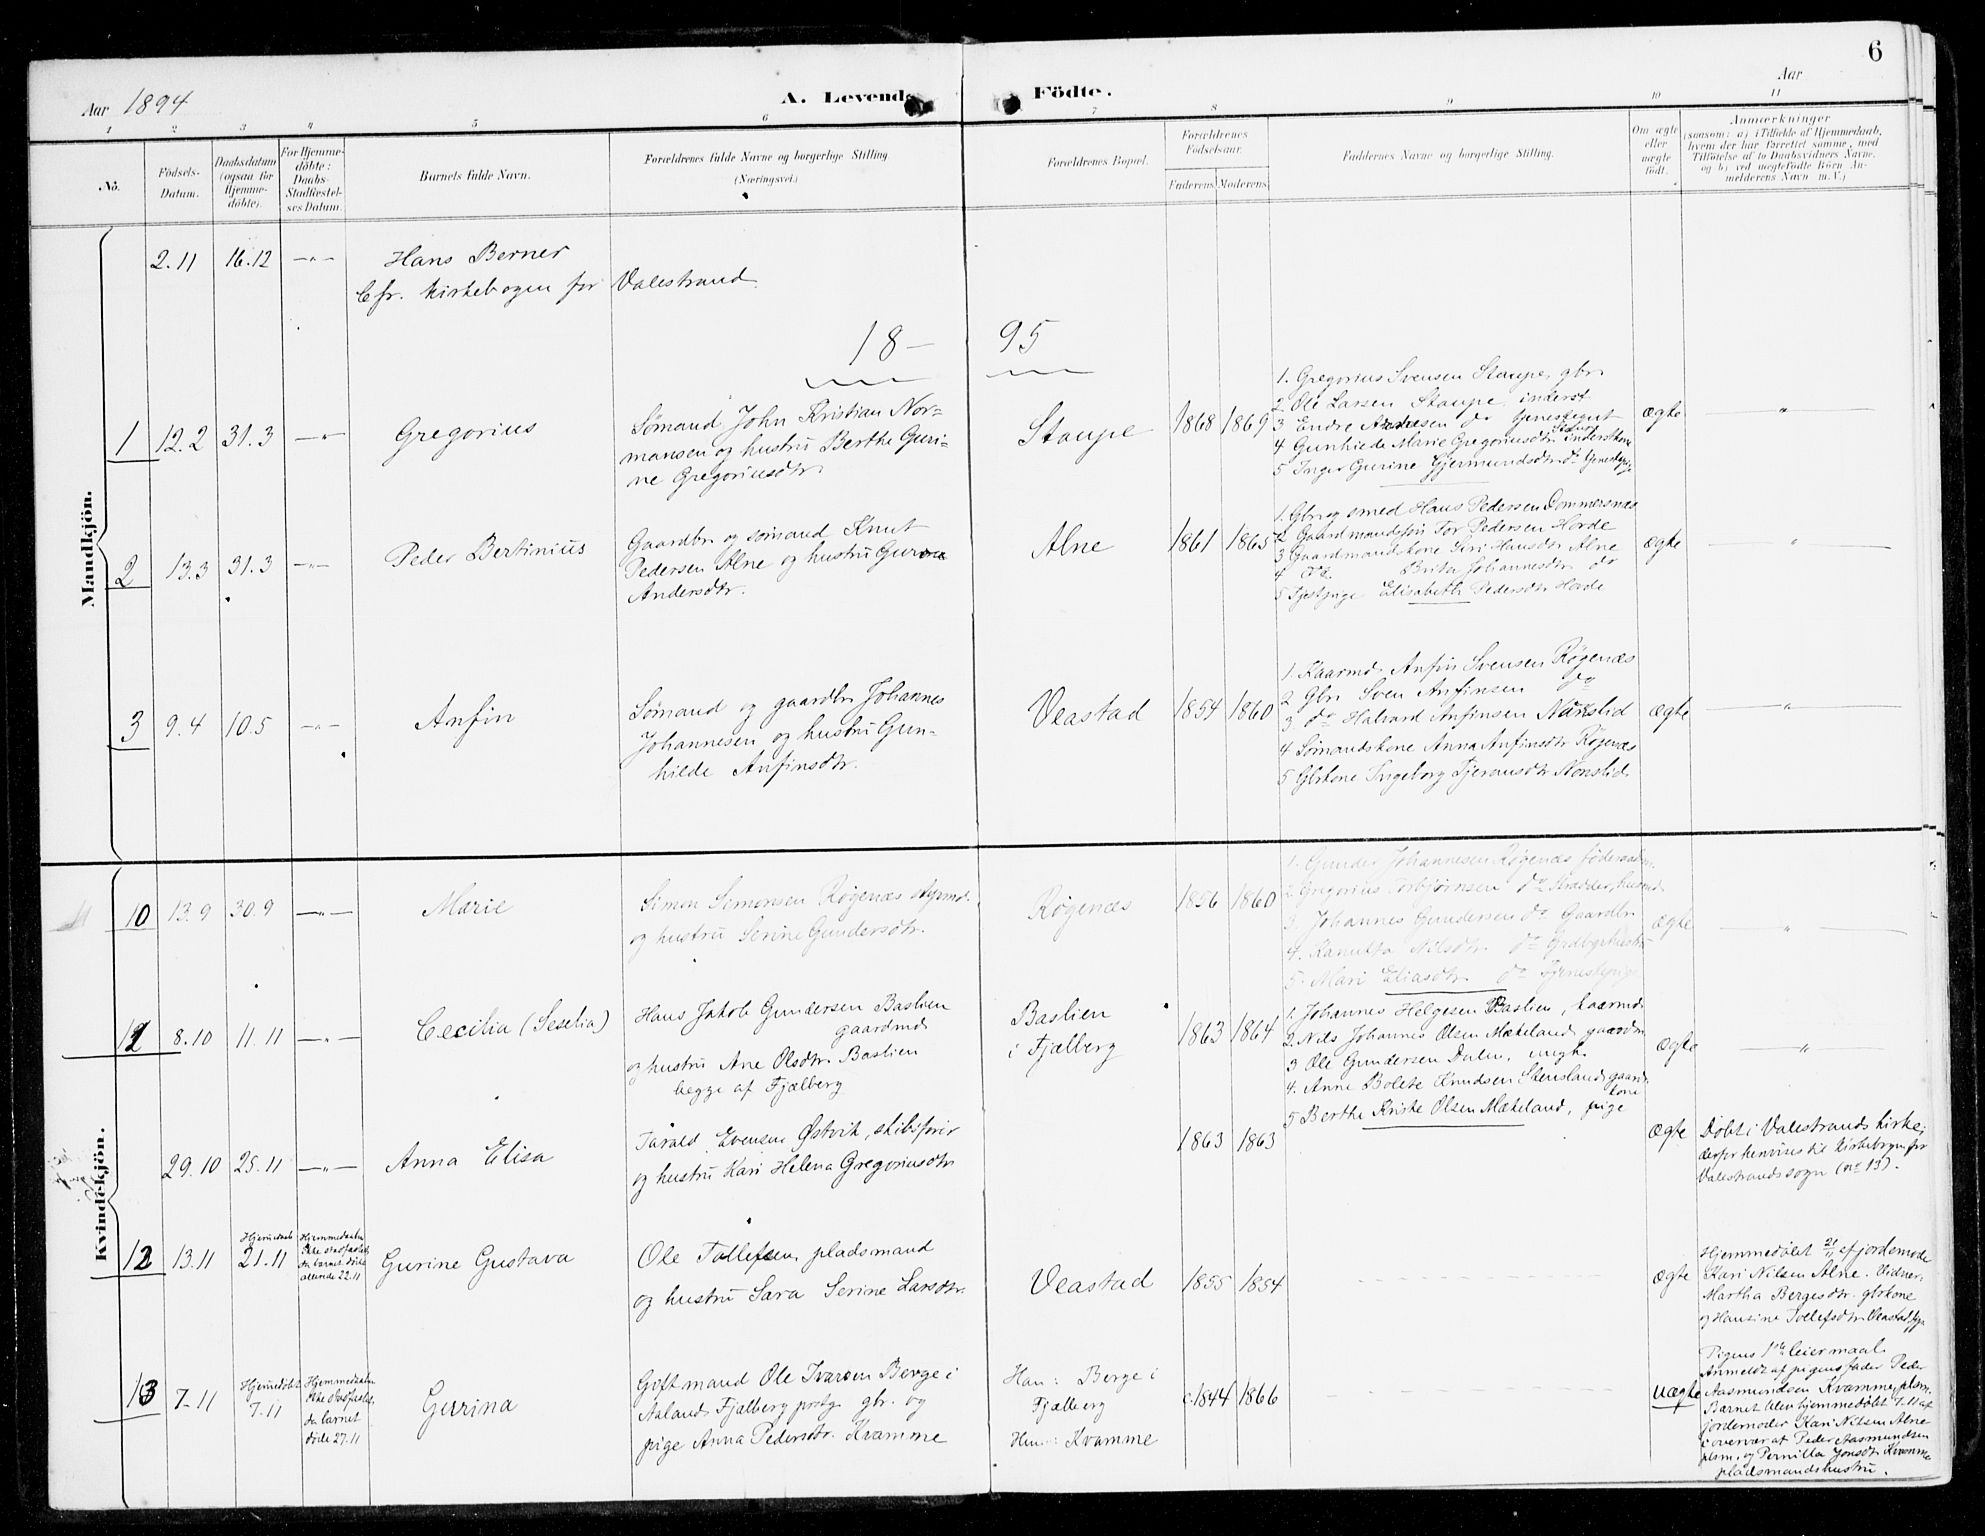 6
Aar 1894
A. Levende Födte.
Aar
1 2 3 4 5 6 7 8 9 10 11
No.
Födsels-
Datum.
Daabsdatum
(ogsaa for
Hjemme-
döbte).
For Hjemme-
döbte:
Daabs-
Stadfæstel-
ses Datum.
Barnets fulde Navn.
Forældrenes fulde Navne og borgerlige Stilling.
(Næringsvei.)
Forældrenes Bopæl.
Forældrenes
Födselsaar.
Faderens
Moderens
Faddernes Navne og borgerlige Stilling.
Om ægte
eller
uægte
födt.
Anmærkninger
(saasom: a) i Tilfælde af Hjemmedaab,
hvem der har forrettet samme, med
Tilföielse af to Daabsvidners Navne,
og b) ved uægtefödte Börn An-
melderens Navn m. V.)
Mandkjön.
2.11 16.12 —„—
Hans Berner
Cfr. Kirkebogen for Valestrand
18— 95
1 12.2 31.3 —„—
Gregorius
Sømand John Kristian Nor=
mansen og hustru Berthe Guri=
ne Gregoriusdtr.
Staupe
1868 1869
1. Gregorius Svensen Staupe, gbr.
2 Ole Larsen Staupe, inderst
3 Endre do tjenestegut
4 Gunhilde Marie Gregoriusdtr inderstkone
5 Inger Gurine Gjermundsdtr do tjenestepige
ægte
„
2 13.3 31.3 —„—
Peder Bertinius
Gaardbr og sømand Knut
Pedersen Alne og hustru Guroa
Andersdtr.
Alne
1861 1865
1. Gbr og smed Hans Pedersen Ommersnæs
2 Gaardmandssøn Tor Pedersen Horde
3 Gaardmandskone Siri Hansdtr Alne
4 do Brita Johannesdtr do
5 Tjestpige Elisabeth Pedersdtr Horde
ægte
„
3 9.4 10.5 —„—
Anfin
Sømand og gaardbr Johannes
Johannesen og hustru Gun-
hilde Anfinsdtr.
Veastad
1854 1860
1. Kaarmd. Anfin Svensen Røgenæs
2 Gbr Sven Anfinsen do
3. do Halvard Anfinsen Nonslid
4 Sømandskone Anna Anfinsdtr Røgenæs
5 Gbrkone Ingeborg Tjeransdtr Nonslid
ægte
„
Kvindekjön.
10 13.9 30.9 —„—
Marie
Simon Simonsen Røgenæs styrmd.
og hustru Serine Gundersdtr.
Røgenæs
1856 1860
1. Gunder Johannesen Røgenæs føderaadm.
2. Gregorius Torbjørnsen do skrædder, husmd
3. Johannes Gundersen do Gaardbr
4. Nilsdtr. do
5. Mari Eliasdtr. do Tjenestepige
ægte
„
11 8.10 11.11 —„—
Cecilia (Seselia)
Hans Jakob Gundersen Bastien
gaardmd
og hustru Ane Olsdtr. Bastien
begge af Fjælberg
Bastien
i Fjælberg
1863 1864
1. Johannes Helgesen Bastien, kaarmd.
2. Nils Johannes Olsen Mækeland, gaardm
3 Ole Gundersen Dalen, ungk.
4. Anne Bolete Knudsen Stensland, gaard-
kone
5 Berthe Kriste Olsen Mækeland, pige
ægte
„
29.10 25.11 —„—
Anna Elisa
Tarald Evensen Østvik, skibsfører
og hustru Kari Helena Gregoriusdtr
1863 1863
ægte
Døbt i Valestrands kirke;
derfor henvises til kirkebogen for
Valestrands sogn (no 13).
12 13.11
Hjemmedøbt
21.11
Hjemmedaaben
ikke stadfæstet,
da barnet døde
allerede 22.11
Gurine Gustava
Ole Tollefsen, pladsmand
og hustru Sara Serine Larsdtr.
Veastad
1855 1854
ægte
Hjemmedøbt 21/11 af jordemoder
Kari Nilsen Alne. Vidner.
Martha Bergesdtr. gbrkone
og Hansine Tollefsdtr. Veastad, pige
13 7-11
Hjemmedøbt
7.11
Hjemmedaaben
ikke stadfæstet,
da barnet
døde 27.11
Gurina
Gift mand Ole Ivarsen Berge i
Aalands Fjælberg prstg gbr. og
pige Anna Pedersdtr. Kvamme
Han: Berge i
Fjælberg
Hun: Kvamme
c.1844 1866
uægte
Pigens 1ste leiermaal.
Anmeldt af pigens fader Peder
Aasmundsen Kvamme, plsm.
Barnet blev hjemmedøbt 7.11 af
jordemoder Kari Nilsen Alne
i overvær af Peder Aasmundsen
plsm. og Pernilla Jonsdtr Kvamme
pladsmandshustru.